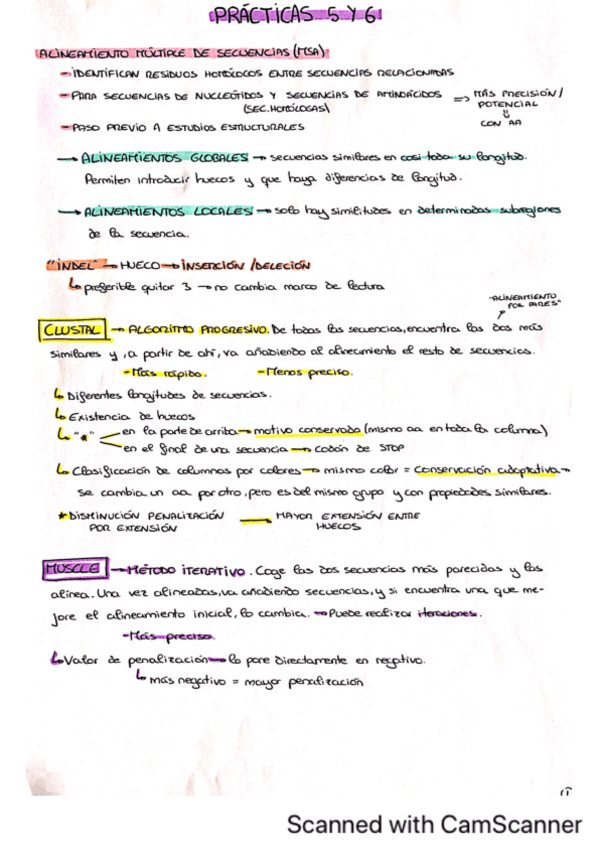 PRÁCTICAS 5 Y 6
ALINEAMIENTO MÚLTIPLE DE SECUENCIAS (MSA)
- IDENTIFICAN RESIDUOS HOMÓLOGOS ENTRE SECUENCIAS RELACIONADAS
- PARA SECUENCIAS DE NUCLEÓTIDOS Y SECUENCIAS DE AMINOÁCIDOS => MÁS PRECISIÓN/
(SEC. HOMÓLOGAS) POTENCIAL
CON AA
- PASO PREVIO A ESTUDIOS ESTRUCTURALES
→ ALINEAMIENTOS GLOBALES → secuencias similares en casi toda su longitud.
Permiten introducir huecos y que haya diferencias de longitud.
→ ALINEAMIENTOS LOCALES → solo hay similitudes en determinadas subregiones
de la secuencia.
"INDEL" → HUECO → INSERCIÓN/DELECIÓN
↳ preferible quitar 3 → no cambia marco de lectura
"ALINEAMIENTO
POR PARES"
CLUSTAL → ALGORITMO PROGRESIVO. De todas las secuencias, encuentra las dos más
similares y, a partir de ahí, va añadiendo al alineamiento el resto de secuencias.
- Más rápido. - Menos preciso.
↳ Diferentes longitudes de secuencias.
↳ Existencia de huecos
↳ "*" en la parte de arriba → motivo conservado (mismo aa en toda la columna)
en el final de una secuencia → codón de STOP
↳ Clasificación de columnas por colores → mismo color = conservación adaptativa →
se cambia un aa por otro, pero es del mismo grupo y con propiedades similares.
* DISMINUCIÓN PENALIZACIÓN → MAYOR EXTENSIÓN ENTRE
POR EXTENSIÓN HUECOS
MUSCLE → MÉTODO ITERATIVO. Coge las dos secuencias más parecidas y las
alinea. Una vez alineadas, va añadiendo secuencias, y si encuentra una que me-
jore el alineamiento inicial, lo cambia. → Puede realizar iteraciones.
- Más preciso.
↳ Valor de penalización → lo pone directamente en negativo.
↳ más negativo = mayor penalización
Scanned with CamScanner